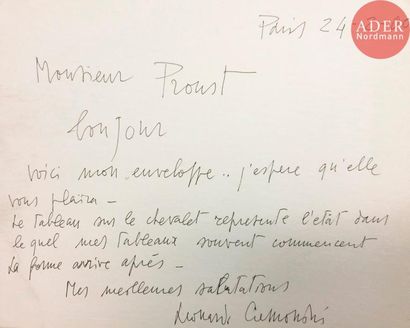 ADER
Nordmann
Paris 24
Monsieur Proust
bonjour
voici mon enveloppe.. j'espere qu'elle
vous plaira –
Le tableau sur le chevalet represente l'etat dans
le quel mes tableaux souvent commencent
La forme arrive après –
Mes meilleures salutations
Leonardo Cremonini